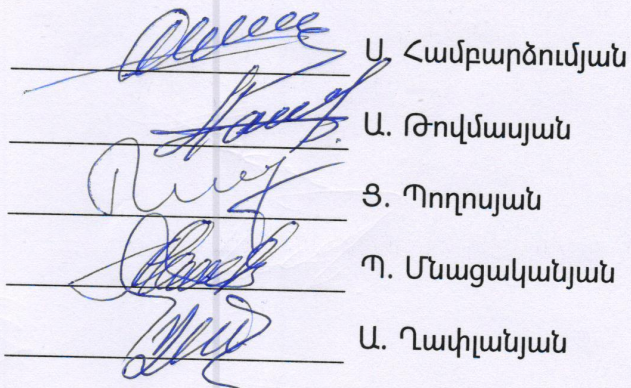 Ս. Համբարձումյան
Ա. Թովմասյան
Ց. Պողոսյան
Պ. Մնացականյան
Ա. Ղափլանյան